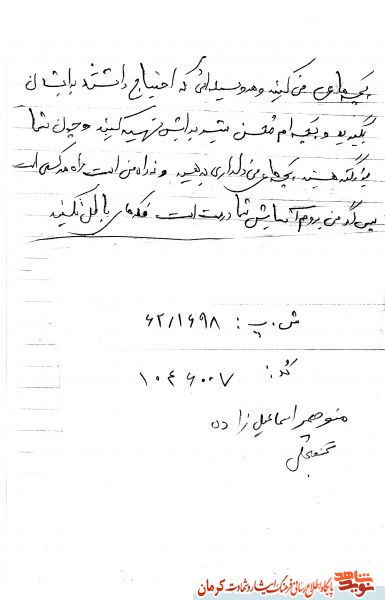 بچه‌های من کنید و هر وسیله‌ای که احتیاج داشتند برایشان
بگیرید و بچه‌ام هر چیزی برایش تهیه کنید و چون شما
بزرگتر هستید بچه‌های من دلداری بدهید و نه راه من است راه هر کسی است
پس اگر من بروم آسایش شما درست است فکرهای باطل نکنید
ش. پ: ۶۲/۱۶۹۸
کد: ۱۰۴۶۰۰۷
منوچهر اسماعیل زاده
نوید شاهد
پایگاه اطلاع رسانی فرهنگ ایثار و شهادت کرمان